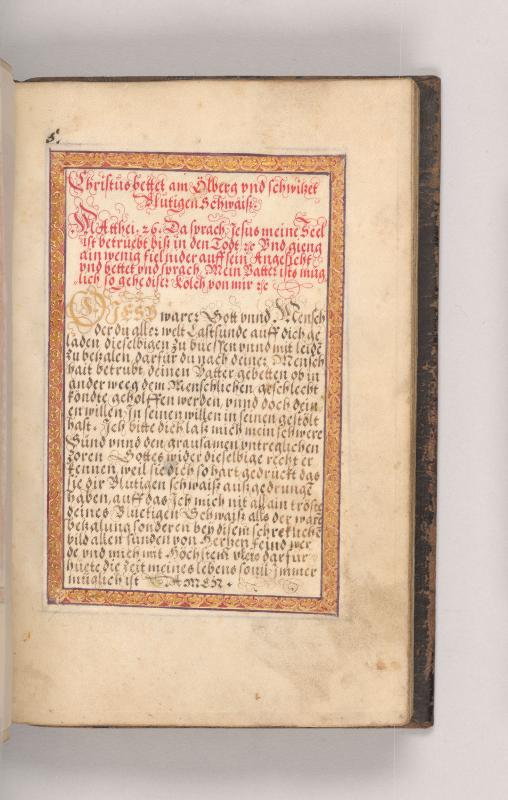 8.
Christus bettet am Ölberg vnd schwitzet
Blutigen Schwaiß.
Matthei. 26. Da sprach Jesus meine Seel
ist betruebt bis in den Todt ꝛc Vnd gieng
ain wenig fiel nider auff sein Angesicht
vnd bettet vnd sprach Mein Vatter ists müg
lich so gehe diser Kolch von mir ꝛc
O JESV warer Gott vnnd Mensch
der du aller welt Last sunde auff dich ge
laden dieselbigen zu buessen vnnd mit leide
zu bezalen, darfür du nach deiner Mensch
hait betrubt deinen Vatter gebetten ob in
ander weeg dem Menschlichen geschlecht
köndte geholffen werden, vnnd doch dein
en willen In seinen willen in seinen gestölt
hast. Ich bitte dich laß mich mein schwere
Sünd vnnd den grausamen vntreglichen
zoren Gottes wider dieselbige recht er
kennen weil sie dich so hart gedrückt das
sie dir Blutigen schwaiß auß gedrungē
haben, auff das Ich mich nit allain tröste
deines Bluetigen Schwaiß als der ware
bezalung sonderen bey disem schreklichē
bild allen sunden von Hertzen feind wer
de vnd mich mit Höchstem vleis darfür
huete die zeit meines lebens souil Immer
müglich ist AMEN.